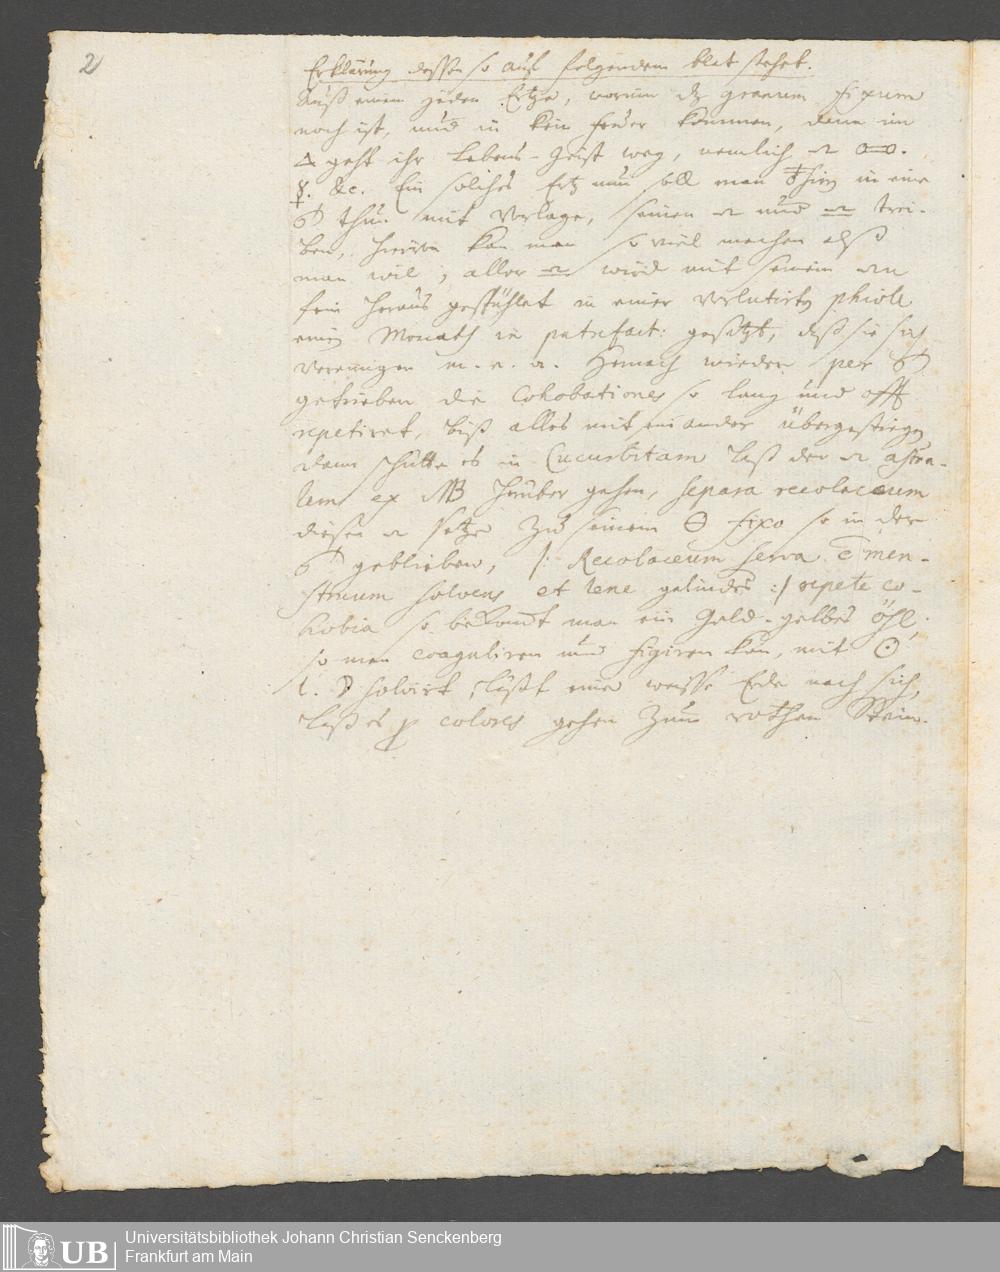 2
Erklärung dessen so auf folgendem blat stehet.
Auß einem jeden Ertze, worinn dz granum fixum
noch ist, und in kein feuer kommen, denn im
🜂 geht ihr Lebens-Geist weg, nemlich
☿. &c. Ein solches Ertz nun soll man in eine
thun mit Vorlage, seinen und trei-
ben, hiervon kan man so viel machen alß
man wil, aller wird mit seinem
fein heraus gespühlet in einer verlutirten phiole
einen Monath in putrefact: gesetzt, daß sie sich
vereinigen m. n. a. Hernach wieder per
getrieben die Cohobationes so lang und offt
repetiret, biß alles mit einander übergestiegen
dann schütte es in Cucurbitam laß den astra-
lem ex MB herüber gehen, separa recolaceum
diesen setze zu seinem 🜔 fixo so in der
geblieben, /: Recolaceum serva c̄ men-
struum solvens et lene gelindes :/ repete co-
hobia so bekomt man ein Gold-gelbes öhl,
so man coaguliren und figiren kan, mit ☉
l. ☽ solvirt, läßt eine weisse Erde nach sich,
laß es p colores gehen zum rothen Stein.
UB
Universitätsbibliothek Johann Christian Senckenberg
Frankfurt am Main